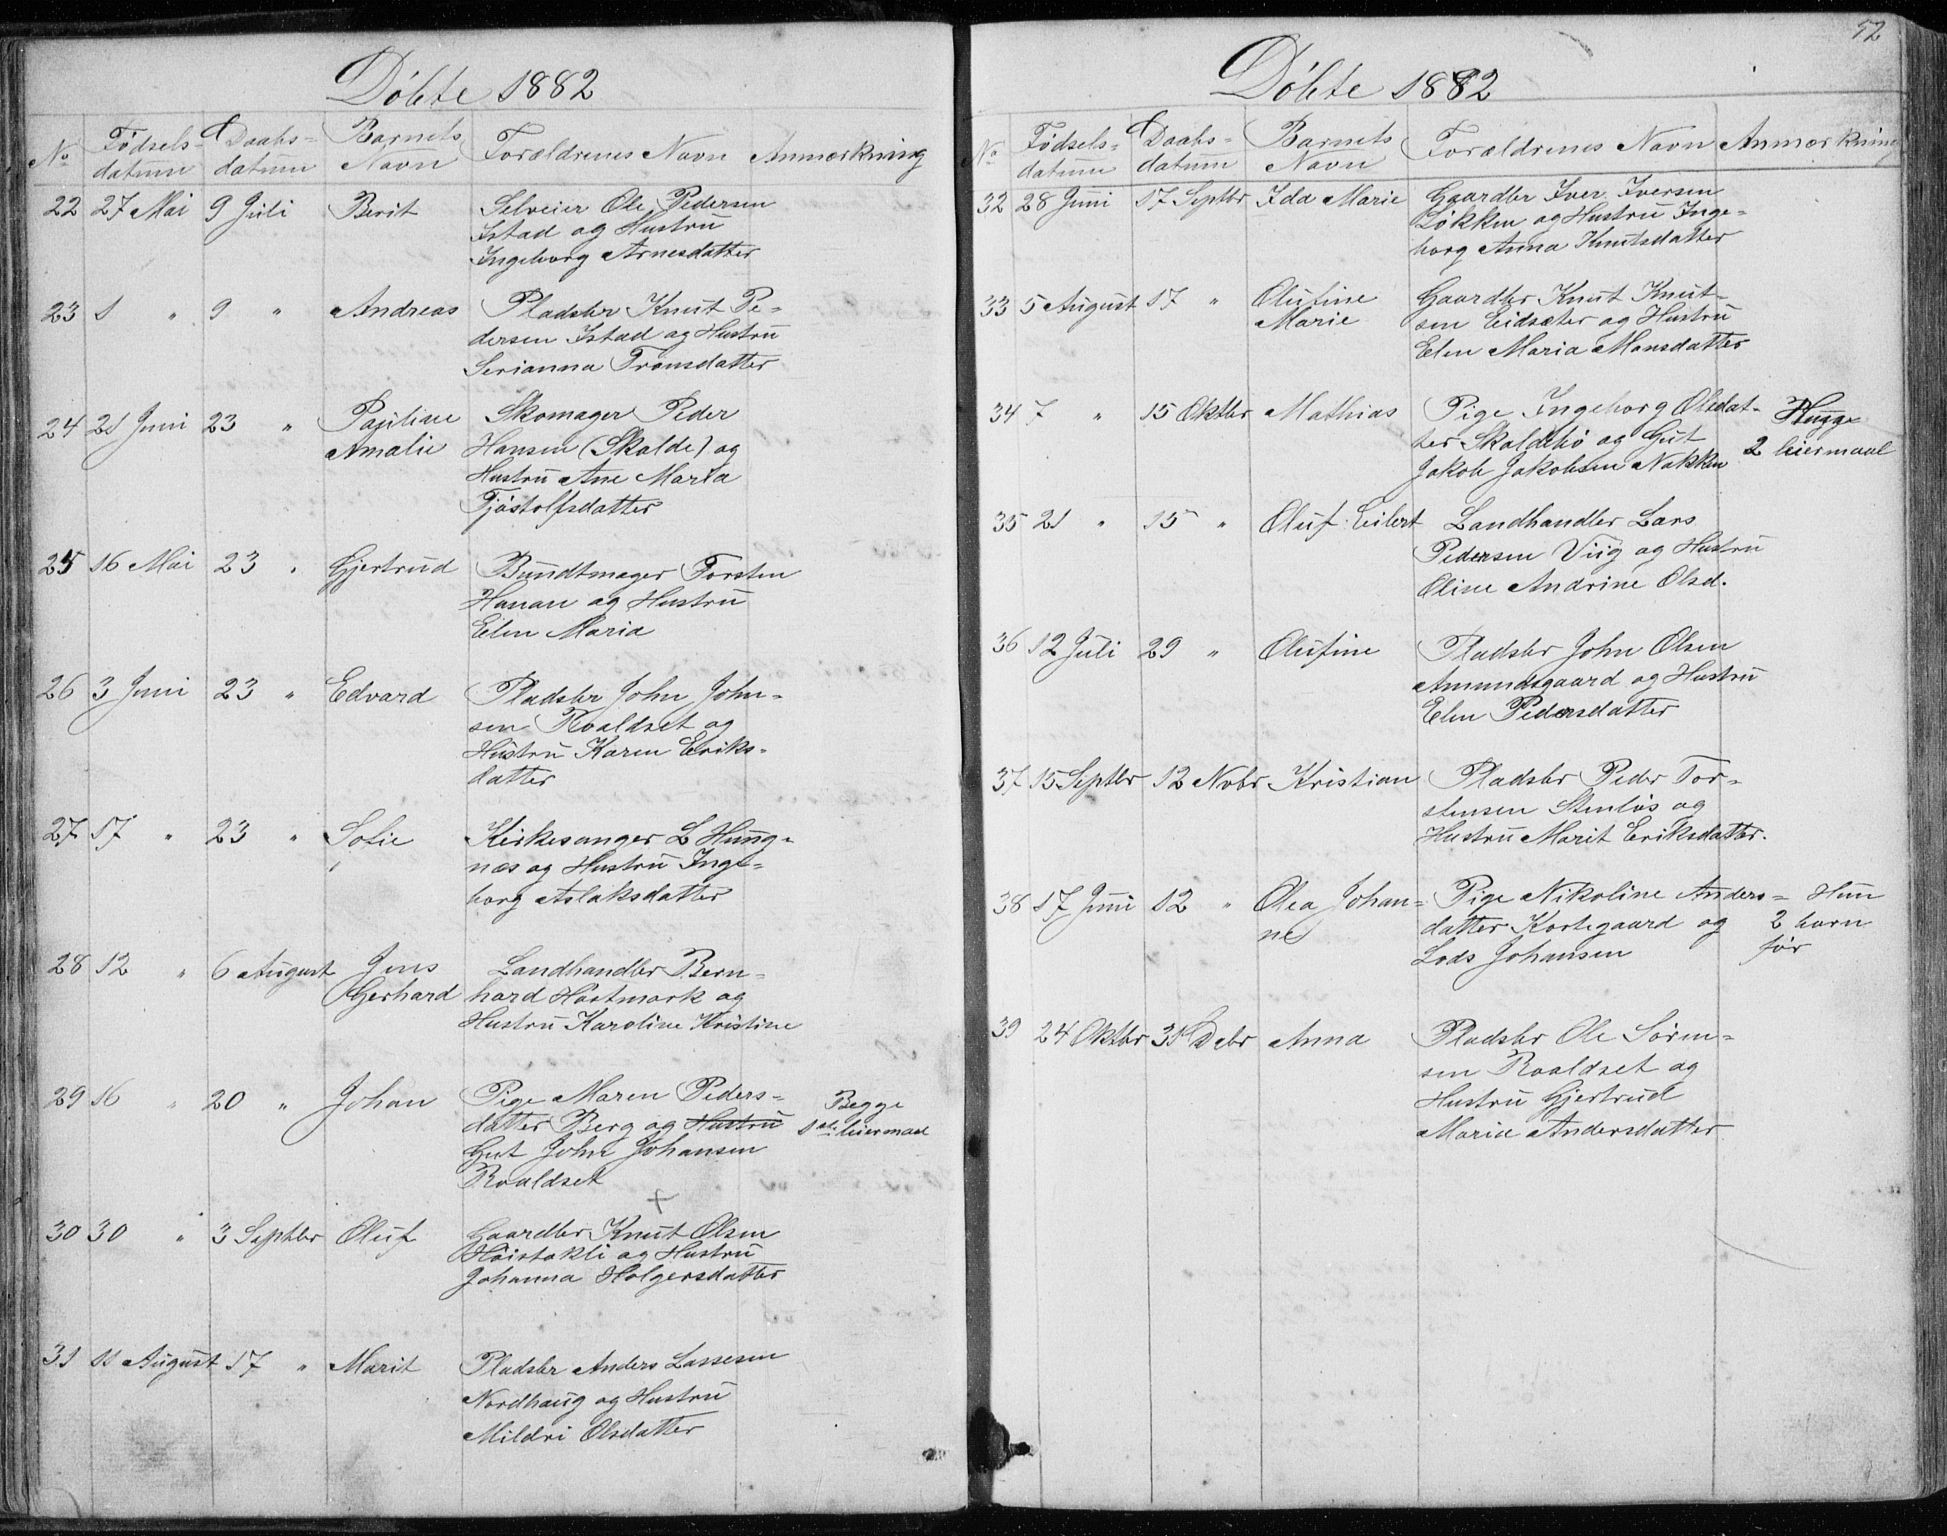 Döbte 1882
No Födsels- Daabs- Barnets Forældrenes Navn Anmærkning
datum datum Navn
22 27 Mai 9 Juli Berit Selveier Ole Pedersen
Istad og Hustru
Ingeborg Arnesdatter
23 1 " 9 " Andreas Pladsbr Knut Pe-
dersen Istad og Hustru
Serianna Tronsdatter
24 21 Juni 23 " Pauline Skomager Peder
Amalie Hansen (Skalde) og
Hustru Ane Maria
Tjöstolfsdatter
25 16 Mai 23 " Gjertrud Bundtmager Torsten
Hanan og Hustru
Elen Maria
26 3 Juni 23 " Edvard Pladsbr John John-
sen Roaldset og
Hustru Karen Eriks-
datter
27 17 " 23 " Sofie Kirkesanger L Hung-
næs og Hustru Inge-
borg Aslaksdatter
28 12 " 6 August Jens Landhandler Bern-
Gerhard hard Hartmark og
Hustru Karoline Kristine
29 16 " 20 " Johan Pige Maren Peders- Begge
datter Berg og Hustru 1ste leiermaal
Gut John Johansen
Roaldset
30 30 " 3 Septbr Oluf Gaardbr Knut Olsen
Höistakli og Hustru
Johanna Holgersdatter
31 11 August 17 " Marit Pladsbr Anders Lassesen
Nordhaug og Hustru
Mildri Olsdatter
52
Döbte 1882
No Födsels- Daabs- Barnets Forældrenes Navn Anmærkning
datum datum Navn
32 28 Juni 17 Septbr Ida Marie Gaardbr Iver Iversen
Lökken og Hustru Inge-
borg Anna Knutsdatter
33 5 August 17 " Olufine Gaardbr Knut Knut-
Marie sen Eidsæter og Hustru
Elen Maria Monsdatter
34 7 " 15 Oktbr Mathias Pige Ingeborg Olsdat-
ter Skaldebö og Gut 2 leiermaal
Jakob Jakobsen Nakken
35 21 " 15 " Oluf Eilert Landhandler Lars
Pedersen Viig og Hustru
Oline Andrine Olsd.
36 12 Juli 29 " Olufine Pladsbr John Olsen
Amundsgaard og Hustru
Elen Pedersdatter
37 15 Septbr 12 Nvbr Kristian Pladsbr Peder Tor-
stensen Stenlös og
Hustru Marit Eriksdatter.
38 17 Juni 12 " Olea Johan- Pige Nikoline Anders- Hun
ne datter Kortgaard og 2 barn
Lods Johansen för
39 24 Oktbr 31 Debr Anna Pladsbr Ole Sören-
sen Roaldset og
Hustru Gjertrud
Maria Andersdatter